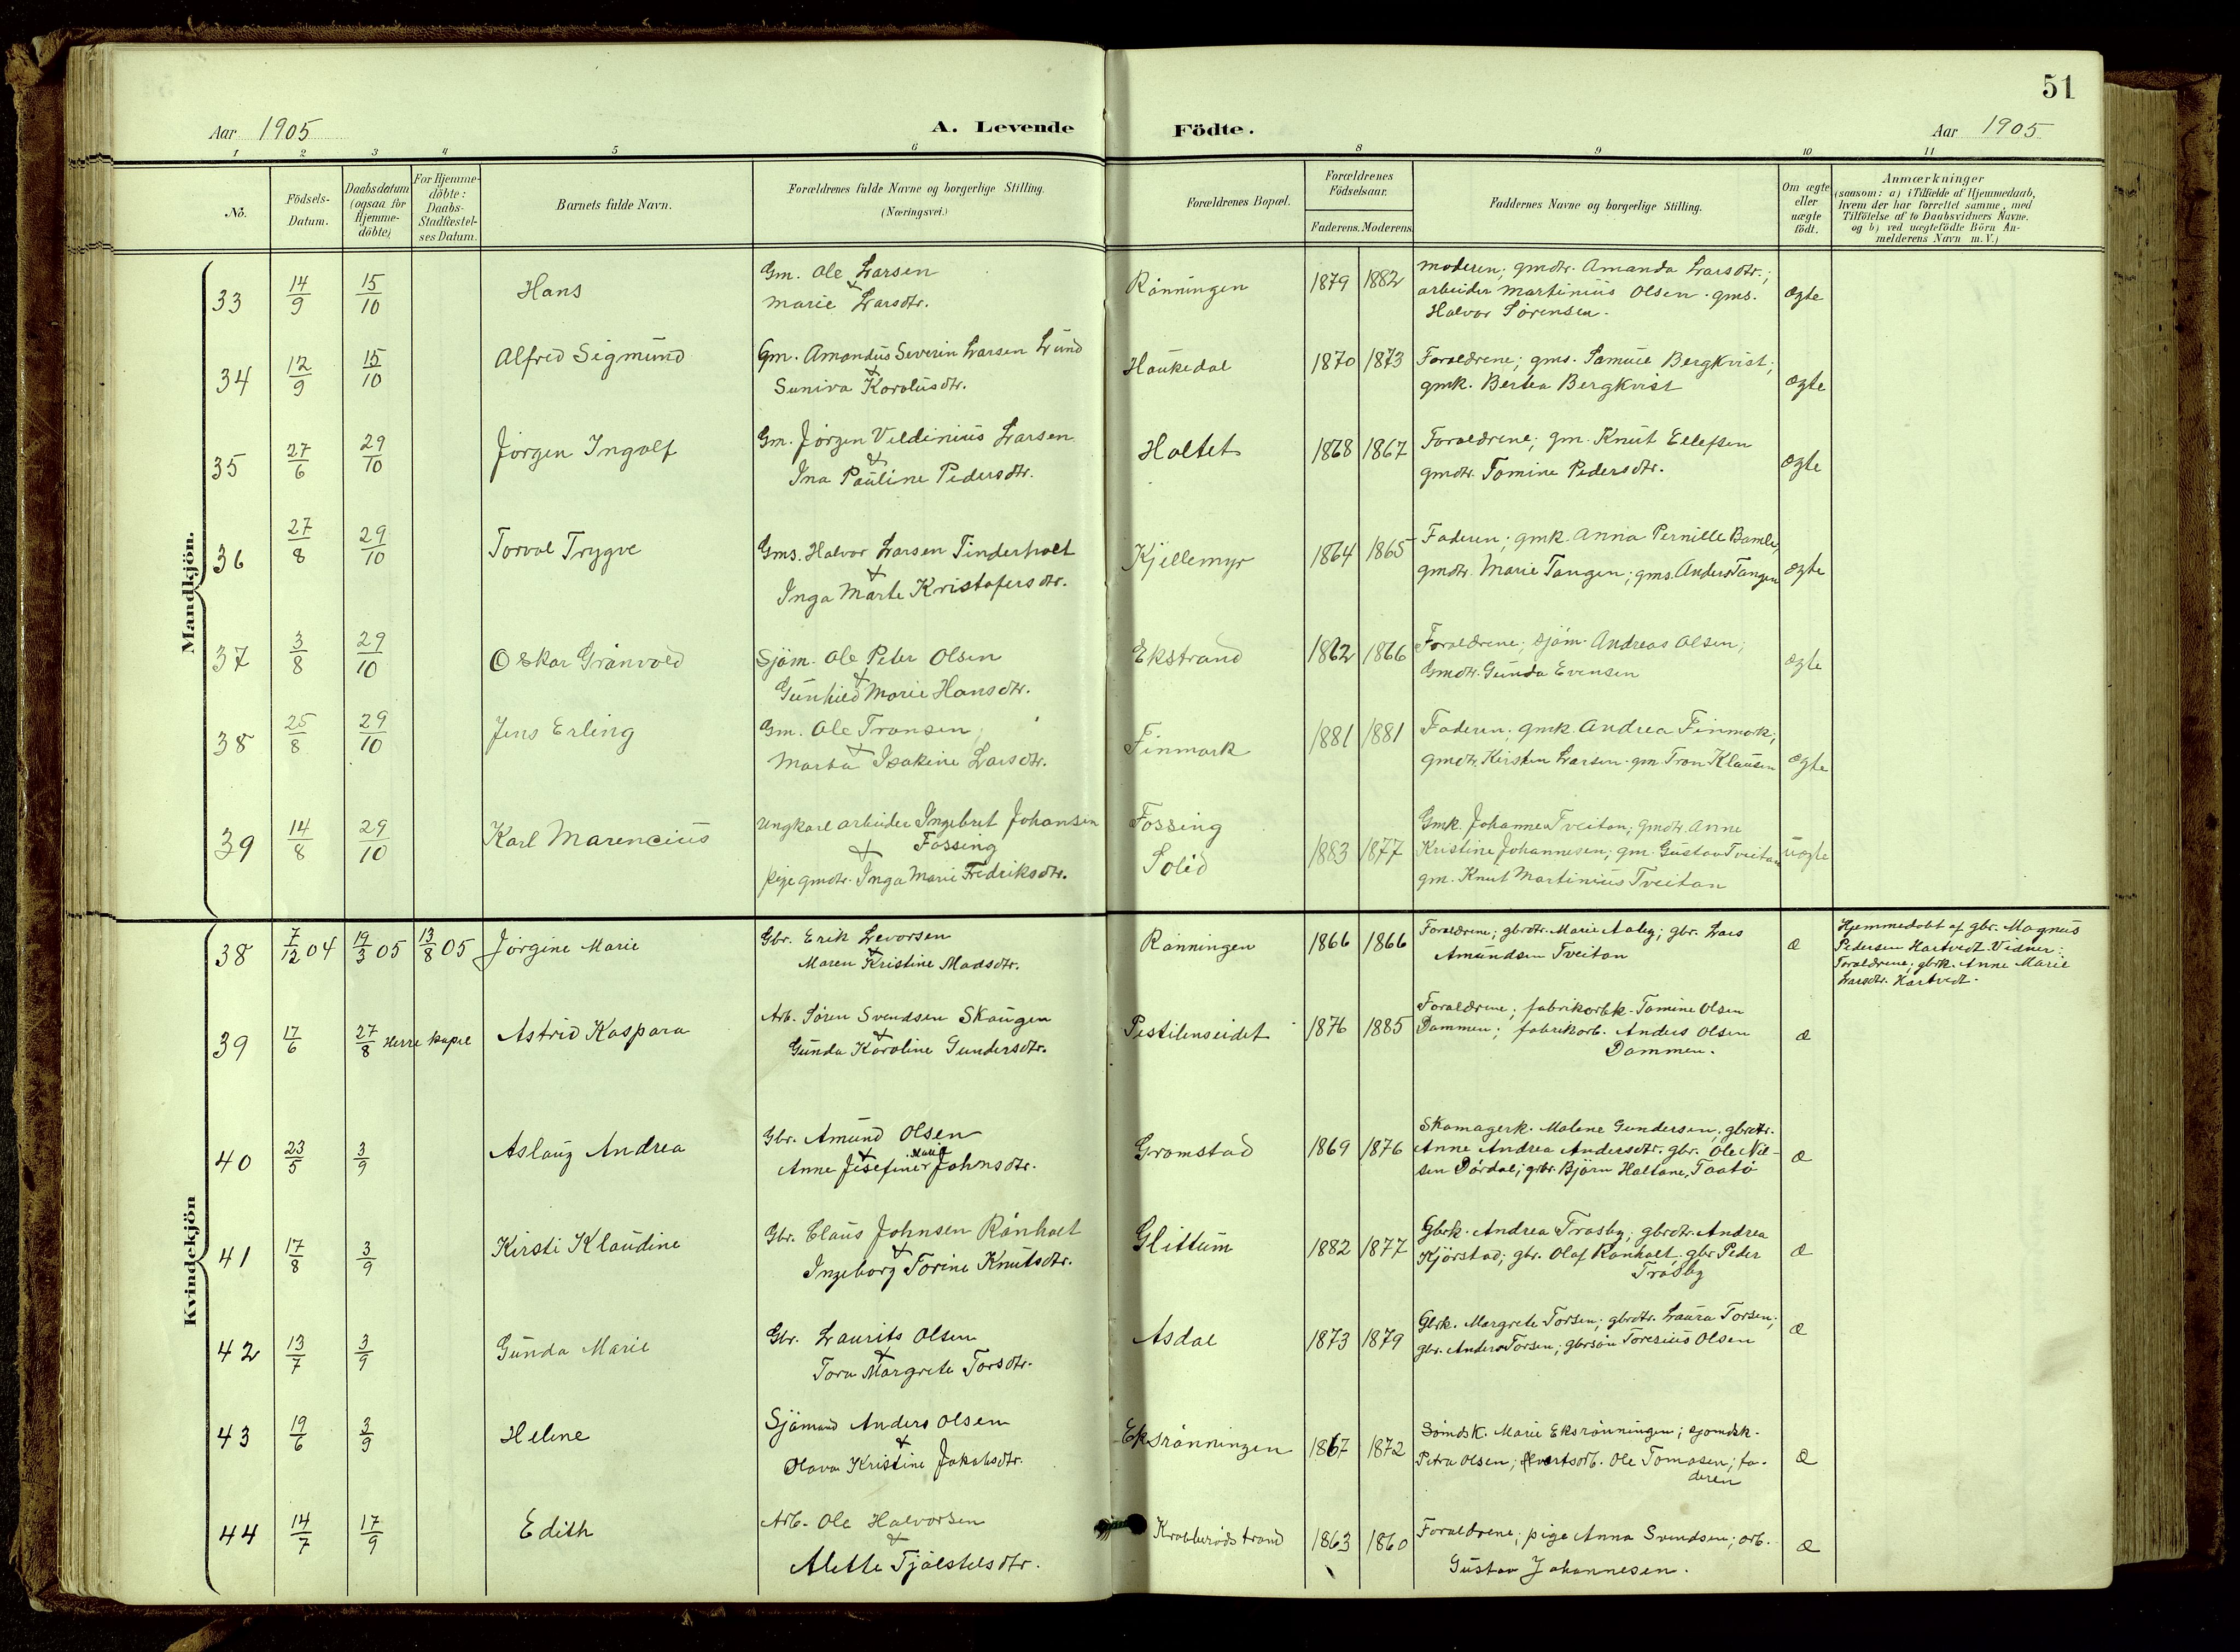 51
Aar 1905
A. Levende Födte.
Aar 1905
1 2 3 4 5 6 8 9 10 11
No.
Födsels-
Datum.
Daabsdatum
(ogsaa for
Hjemme-
döbte)
For Hjemme-
döbte:
Daabs-
Stadfæstel-
ses Datum.
Barnets fulde Navn.
Forældrenes fulde Navne og borgerlige Stilling.
(Næringsvei.)
Forældrenes Bopæl.
Forældrenes
Födselsaar.
Faderens. Moderens.
Faddernes Navne og borgerlige Stilling.
Om ægte
eller
uægte
födt.
Anmærkninger
(saasom: a) i Tilfælde af Hjemmedaab,
hvem der har forrettet samme, med
Tilföielse af to Daabsvidners Navne.
og b) ved uægtefödte Börn An-
melderens Navn m. V.)
Mandkjön.
33 14/9 15/10 Hans
Gm. Ole Larsen
&
Marie Larsdtr.
Rønningen 1879 1882
Moderen; gmdtr. Amanda Larsdtr.;
arbeider Martinius Olsen. gms.
Halvor Sörensen.
ægte
34 12/9 15/10 Alfred Sigmund
Gm. Amandus Severin Larsen Lund
&
Suniva Karolusdtr.
Haukedal 1870 1873
Forældrene; gms. Samuel Bergkvist;
gmk. Bertea Bergkvist
ægte
35 27/6 29/10 Jörgen Ingolf
Gm. Jörgen Veldinius Larsen
&
Ina Pauline Pedersdtr.
Holtet 1868 1867
Forældrene; gm. Knut Ellefsen
gmdtr. Tomine Pedersdtr.
ægte
36 27/8 29/10 Torval Trygve
Gms. Halvor Larsen Tinderholt
&
Inga Marte Kristofersdtr.
Kjellemyr 1864 1865
Faderen; gmk. Anna Pernille Bamle,
gmdtr. Marie Tangen; gms. Anders Tangen
ægte
37 3/8 29/10 Oskar Grånvold
Sjöm. Ole Peter Olsen
&
Gunhild Marie Hansdtr.
Ekstrand 1862 1866
Forældrene; sjöm. Andreas Olsen;
Gmdtr. Gunda Evensen
ægte
38 25/8 29/10 Jens Erling
Gm. Ole Transen
&
Marta Isakine Larsdtr.
Finmark 1881 1881
Faderen; gmk. Andrea Finmark;
gmdtr. Kirsten Larsen. gm Tron Klausen
ægte
39 14/8 29/10 Karl Marencius
Ungkarl arbeider Ingebret Johansen
& Fossing
pige gmdtr. Inga Marie Fredriksdtr.
Fossing
Solid
1883 1877
Gmk. Johanne Tveitan; gmdtr. Anne
Kristine Johannesen; gm. Gustav Tveitan
gm. Knut Martinius Tveitan
uægte
Kvindekjön
38 7/12 04 19/3 05 13/8 05 Jörgine Marie
Gbr. Erik Levorsen
&
Maren Kristine Madsdtr.
Rønningen 1866 1866
Forældrene; gbrdtr. Marie Aaby; gbr. Lars
Amundsen Tveitan
æ
Hjemmedøbt af gbr. Magnus
Pedersen Hartvedt. Vidner:
Forældrene; gbrk. Anne Marie
Larsdtr. Hartvedt.
39 17/6 27/8 Herre kapel Astrid Kaspara
Arb. Sören Svendsen Skaugen
&
Gunda Karoline Gundersdtr.
Pestilenseidet 1876 1885
Forældrene; fabrikarbk. Tomine Olsen
Dammen; fabrikarb. Anders Olsen
Dammen.
æ
40 23/5 3/9 Aslaug Andrea
Gbr. Amund Olsen
&
Anne Josefine Marie Johnsdtr.
Gromstad 1869 1876
Skomagerk. Malene Gundersen; gbrdtr.
Anne Andrea Andersdtr. gbr. Ole Niel-
sen Dördal; gbr. Björn Haltane, Taatö
æ
41 17/8 3/9 Kirsti Klaudine
Gbr. Claus Johnsen Rånholt
&
Ingeborg Torine Knutsdtr.
Glittum 1882 1877
Gbrk. Andrea Trosby; gbrdtr. Andrea
Kjörstad; gbr. Olaf Rønholt; gbr Peder
Trosby
æ
42 13/7 3/9 Gunda Marie
Gbr. Laurits Olsen
&
Tora Margrete Torsdtr.
Asdal 1873 1879
Gbrk. Margrete Torsen; gbrdtr. Laura Torsen;
gbr. Anders Torsen; gbrsön Toresius Olsen
æ
43 19/6 3/9 Helene
Sjömand Anders Olsen
&
Olava Kristine Jakobsdtr.
Eksrønningen 1867 1872
Sömdsk. Marie Eksrønningen; sjomdsk.
Petra Olsen; Ole Tomasen; fa-
deren
æ
44 14/7 17/9 Edith
Arb. Ole Halvorsen
&
Alette Tjølstelsdtr.
Krabberödstrand 1863 1860
Forældrene; pige Anna Svendsen; arb.
Gustav Johannesen.
æ